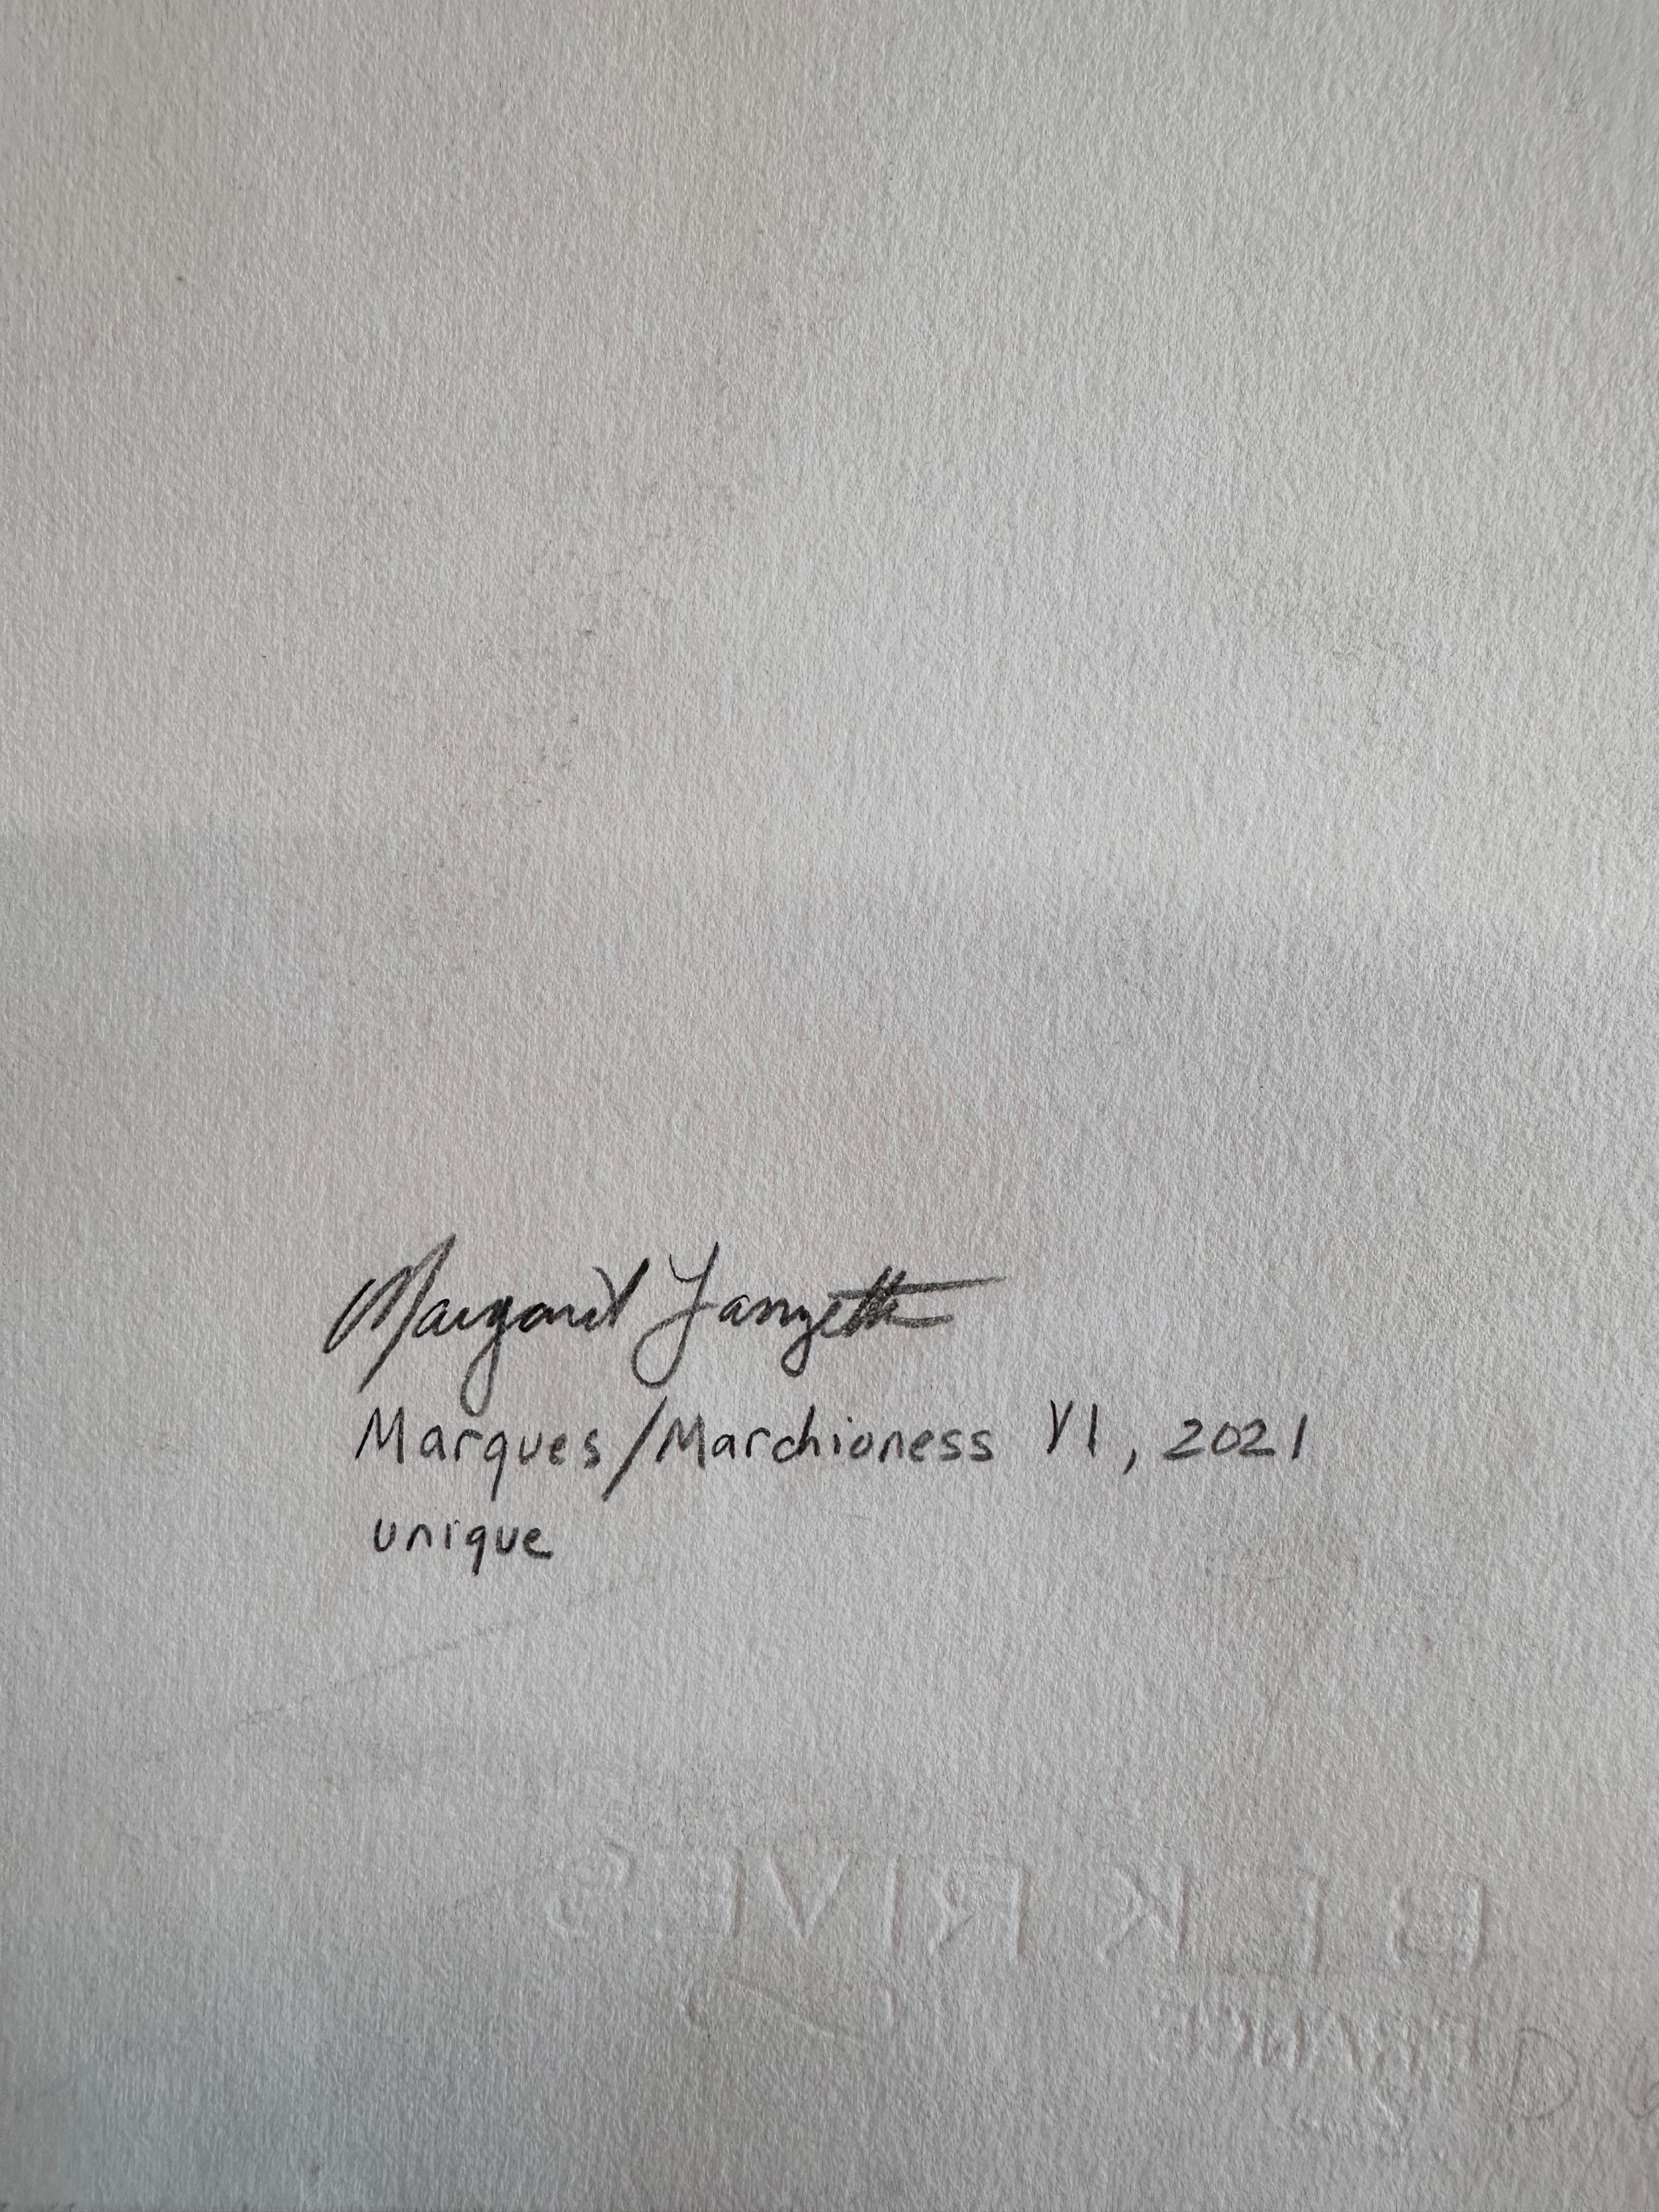 Margaret Lanzetta
Marques/Marchioness VI, 2021
unique
BFK RIVES
FRANCE